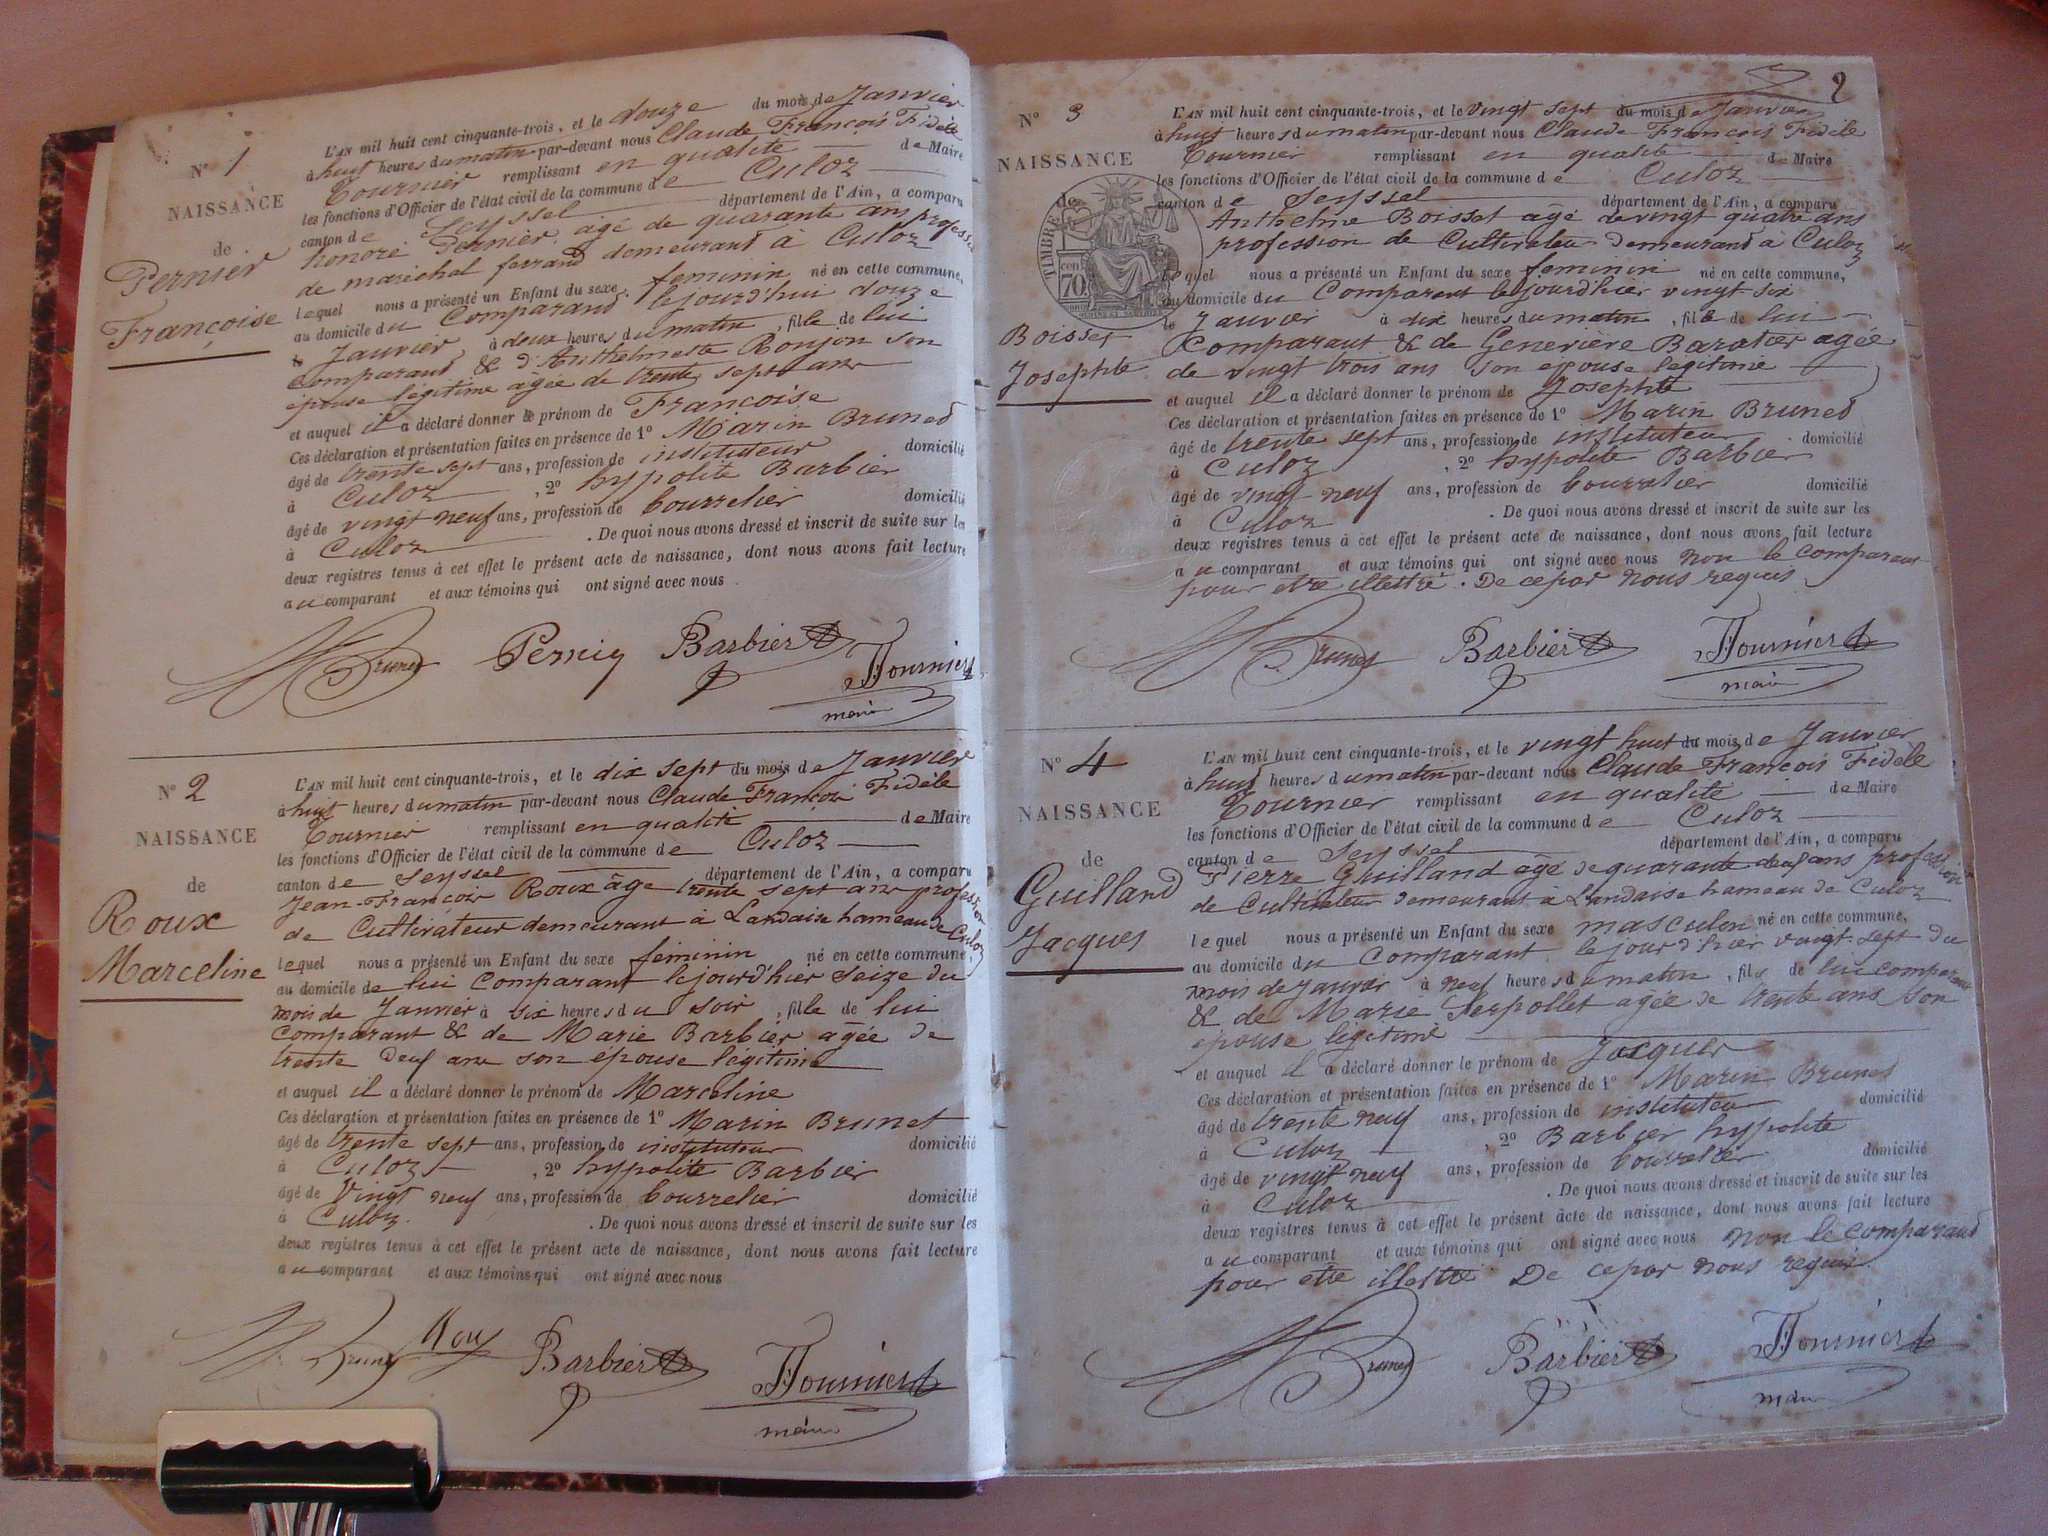 N° 1
NAISSANCE
de
Pernier
Françoise
L'AN mil huit cent cinquante-trois, et le douze du mois de Janvier
à huit heures du matin par-devant nous Claude François Fidèle
Tournier remplissant en qualité de Maire
les fonctions d'Officier de l'état civil de la commune de Culoz
canton de Seyssel département de l'Ain, a comparu
honoré Pernier, agé de quarante ans profession
de maréchal ferrand demeurand à Culoz
lequel nous a présenté un Enfant du sexe feminin né en cette commune,
au domicile du Comparand lejourd'hui douze
Janvier à deux heures du matin, fille de lui
comparand & d'Anthelmette Ronjon son
épouse légitime agée de trente sept ans
et auquel il a déclaré donner le prénom de Françoise
Ces déclaration et présentation faites en présence de 1° Marin Brunet
âgé de trente sept ans, profession de instituteur domicilié
à Culoz, 2° hypolite Barbier
âgé de vingt neuf ans, profession de bourrelier domicilié
à Culoz. De quoi nous avons dressé et inscrit de suite sur les
deux registres tenus à cet effet le présent acte de naissance, dont nous avons fait lecture
au comparant et aux témoins qui ont signé avec nous
Brunet Barbier Tournier
maire
N° 2
NAISSANCE
de
Roux
Marceline
L'AN mil huit cent cinquante-trois, et le dix sept du mois de Janvier
à huit heures du matin par-devant nous Claude François Fidèle
Tournier remplissant en qualité de Maire
les fonctions d'Officier de l'état civil de la commune de Culoz
canton de Seyssel département de l'Ain, a comparu
Jean-François Roux âge trente sept ans profession
de Cultivateur demeurant à Landaise hameau de Culoz
lequel nous a présenté un Enfant du sexe féminin né en cette commune,
au domicile de lui comparant lejourd'hier seize du
mois de Janvier à six heures du soir, fille de lui
comparant & de Marie Barbier agée de
trente deuf ans son épouse légitime
et auquel il a déclaré donner le prénom de Marceline
Ces déclaration et présentation faites en présence de 1° Marin Brunet
âgé de trente sept ans, profession de instituteur domicilié
à Culoz, 2° hypolite Barbier
âgé de Vingt neuf ans, profession de bourrelier domicilié
à Culoz. De quoi nous avons dressé et inscrit de suite sur les
deux registres tenus à cet effet le présent acte de naissance, dont nous avons fait lecture
au comparant et aux témoins qui ont signé avec nous
Brunet Barbier Tournier
maire
2
N° 3
NAISSANCE
de
TIMBRE
70
Boisset
Josephte
L'AN mil huit cent cinquante-trois, et le vingt sept du mois de Janvier
à huit heures du matin par-devant nous Claude François Fidèle
Tournier remplissant en qualité de Maire
les fonctions d'Officier de l'état civil de la commune de Culoz
canton de Seyssel département de l'Ain, a comparu
Anthelme Boisset âgé de vingt quatre ans
profession de Cultivateur demeurand à Culoz
lequel nous a présenté un Enfant du sexe feminin né en cette commune,
au domicile du Comparant lejourd'hier vingt six
le Janvier à dix heures du matin, fille de lui
Comparant & de Generière Baratier agée
de vingt trois ans son epouse legitime
et auquel il a déclaré donner le prénom de Josephte
Ces déclaration et présentation faites en présence de 1° Marin Brunet
âgé de trente sept ans, profession de instituteur domicilié
à Culoz, 2° hypolite Barbier
âgé de vingt neuf ans, profession de bourrelier domicilié
à Culoz. De quoi nous avons dressé et inscrit de suite sur les
deux registres tenus à cet effet le présent acte de naissance, dont nous avons fait lecture
au comparant et aux témoins qui ont signé avec nous non le comparant
pour etre illettré. De cepar nous requis.
Brunet Barbier Tournier
maire
N° 4
NAISSANCE
de
Guilland
Jacques
L'AN mil huit cent cinquante-trois, et le vingt huit du mois de Janvier
à huit heures du matin par-devant nous Claude François Fidèle
Tournier remplissant en qualité de Maire
les fonctions d'Officier de l'état civil de la commune de Culoz
canton de Seyssel département de l'Ain, a comparu
Pierre Guilland âgé de quarante deuf ans profession
de Cultivateur demeurant à Landaise hameau de Culoz
lequel nous a présenté un Enfant du sexe masculin né en cette commune,
au domicile du Comparant le jour d'hier vingt-sept du
mois de Janvier à neuf heures du matin, fils de lui comparant
& de Marie Serpollet agée de trente ans son
épouse légitime
et auquel il a déclaré donner le prénom de Jacques
Ces déclaration et présentation faites en présence de 1° Marin Brunet
âgé de trente neuf ans, profession de instituteur domicilié
à Culoz, 2° Barbier hypolite
âgé de vingt neuf ans, profession de bourrelier domicilié
à Culoz. De quoi nous avons dressé et inscrit de suite sur les
deux registres tenus à cet effet le présent acte de naissance, dont nous avons fait lecture
au comparant et aux témoins qui ont signé avec nous non le comparand
pour etre illettré. De cepar nous requis.
Brunet Barbier Tournier
maire